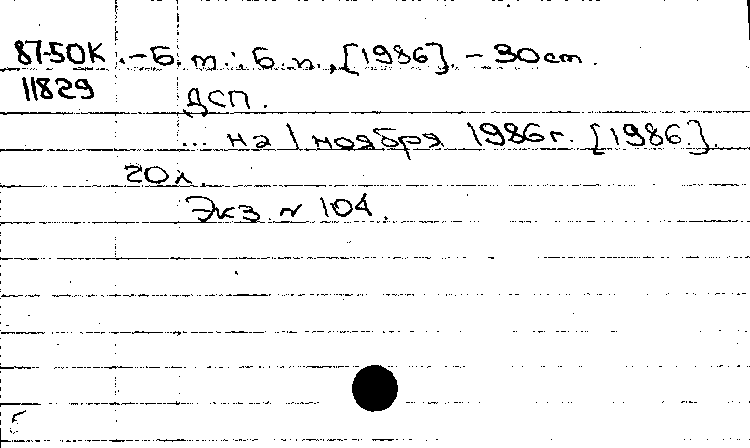 87-50К .-Б. т.: Б. и., [1986]. - 30 см.
11829 ДСП.
... на 1 ноября 1986 г. [1986].
20 л.
Экз. № 104.